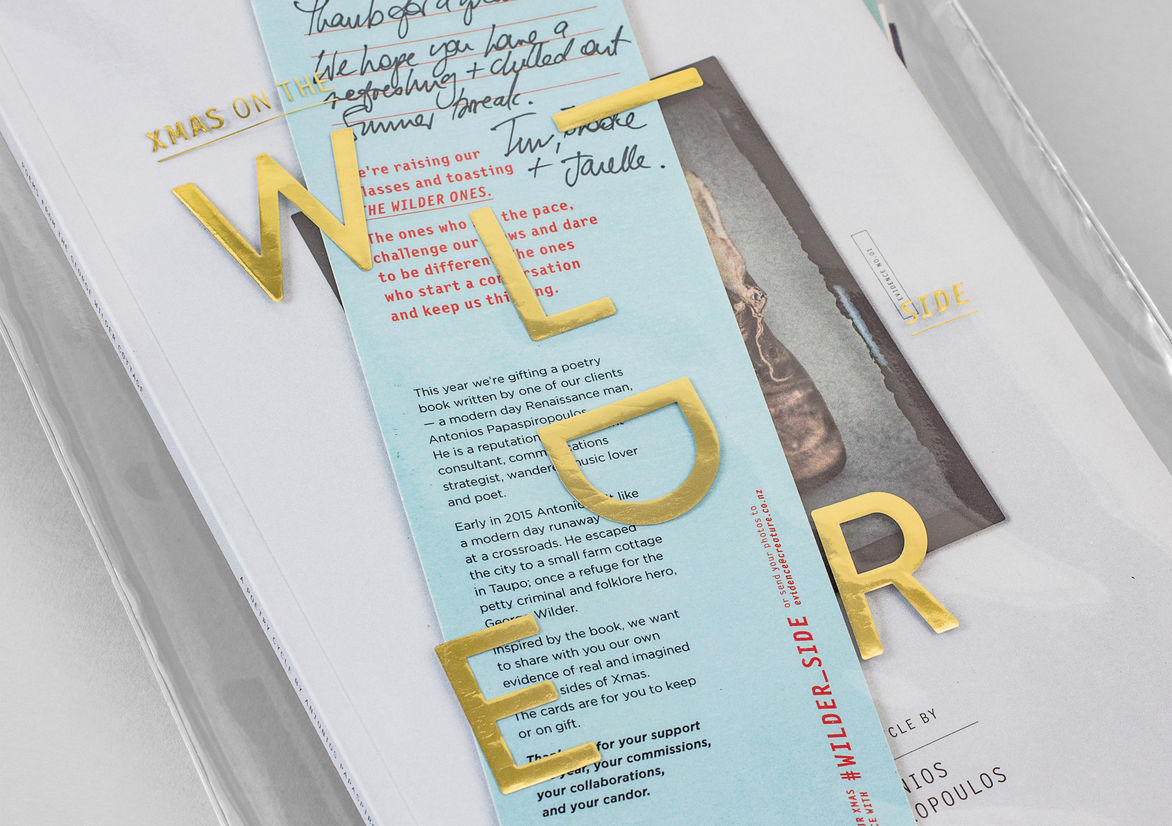 Thanks for a
We hope you have a
refreshing + chilled out
Summer break.
Tim, Brooke
+ Janelle.
XMAS ON THE
WILDER
SIDE
e're raising our
lasses and toasting
THE WILDER ONES.
The ones who the pace,
challenge our ws and dare
to be different the ones
who start a conversation
and keep us thi ng.
This year we're gifting a poetry
book written by one of our clients
— a modern day Renaissance man,
Antonios Papaspiropoulos
He is a reputation
consultant, communications
strategist, wanderer music lover
and poet.
Early in 2015 Antonios like
a modern day runaway
at a crossroads. He escaped
the city to a small farm cottage
in Taupo; once a refuge for the
petty criminal and folklore hero,
George Wilder.
Inspired by the book, we want
to share with you our own
evidence of real and imagined
sides of Xmas.
The cards are for you to keep
or on gift.
Thank for your support
year, your commissions,
your collaborations,
and your candor.
or send your photos to
evidence@creature.co.nz
#WILDER_SIDE
UR XMAS
CE WITH
EVIDENCE NO.01
CLE BY
NIOS
OPOULOS
POEMS FROM THE GEORGE WILDER COTTAGE
A POETRY CYCLE BY ANTONIOS PAPASPIR